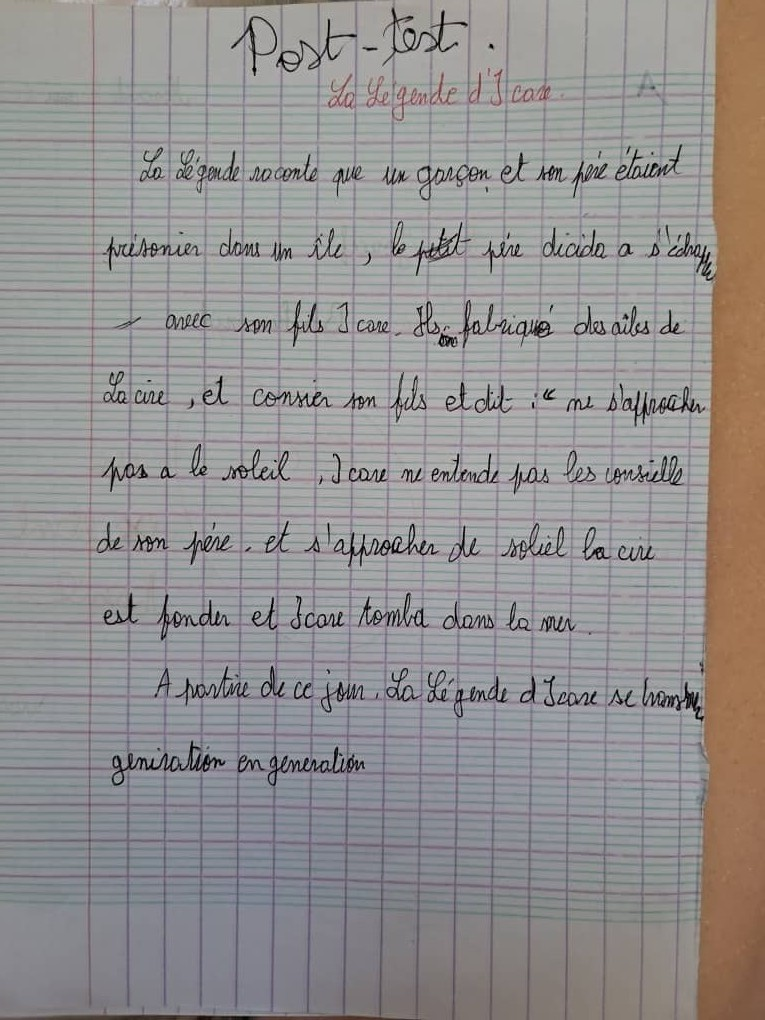 Post-test.
La Légende d'Icare.
La Légende raconte que un garçon et son père étaient
présonier dans un île, le père dicida a s'échappe
avec son fils Icare. Ils ont fabriqué des ailes de
La cire, et consier son fils et dit : " ne s'approcher
pas a le soleil, Icare ne entende pas les consielle
de son père. et s'approcher de soliel la cire
est fonder et Icare tomba dans la mer.
A partire de ce jour. La Légende d Icare se
géniration en generation